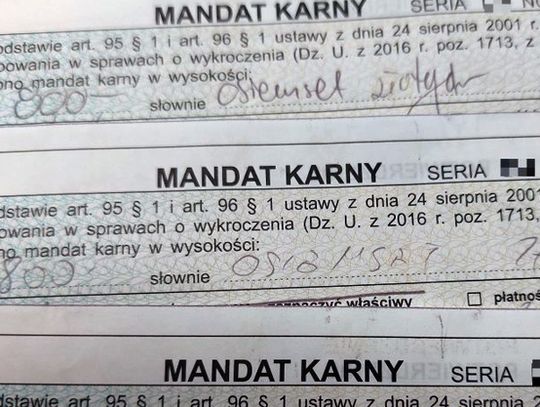 MANDAT KARNY SERIA
odstawie art. 95 § 1 i art. 96 § 1 ustawy z dnia 24 sierpnia 2001 r.
powania w sprawach o wykroczenia (Dz. U. z 2016 r. poz. 1713, z
ono mandat karny w wysokości:
800,- słownie osiemset złotych
MANDAT KARNY SERIA
dstawie art. 95 § 1 i art. 96 § 1 ustawy z dnia 24 sierpnia 2001
owania w sprawach o wykroczenia (Dz. U. z 2016 r. poz. 1713,
no mandat karny w wysokości:
800,- słownie
zaznaczyć właściwy płatnoś
MANDAT KARNY SERIA
dstawie art. 95 § 1 i art. 96 § 1 ustawy z dnia 24 sierpnia 2001